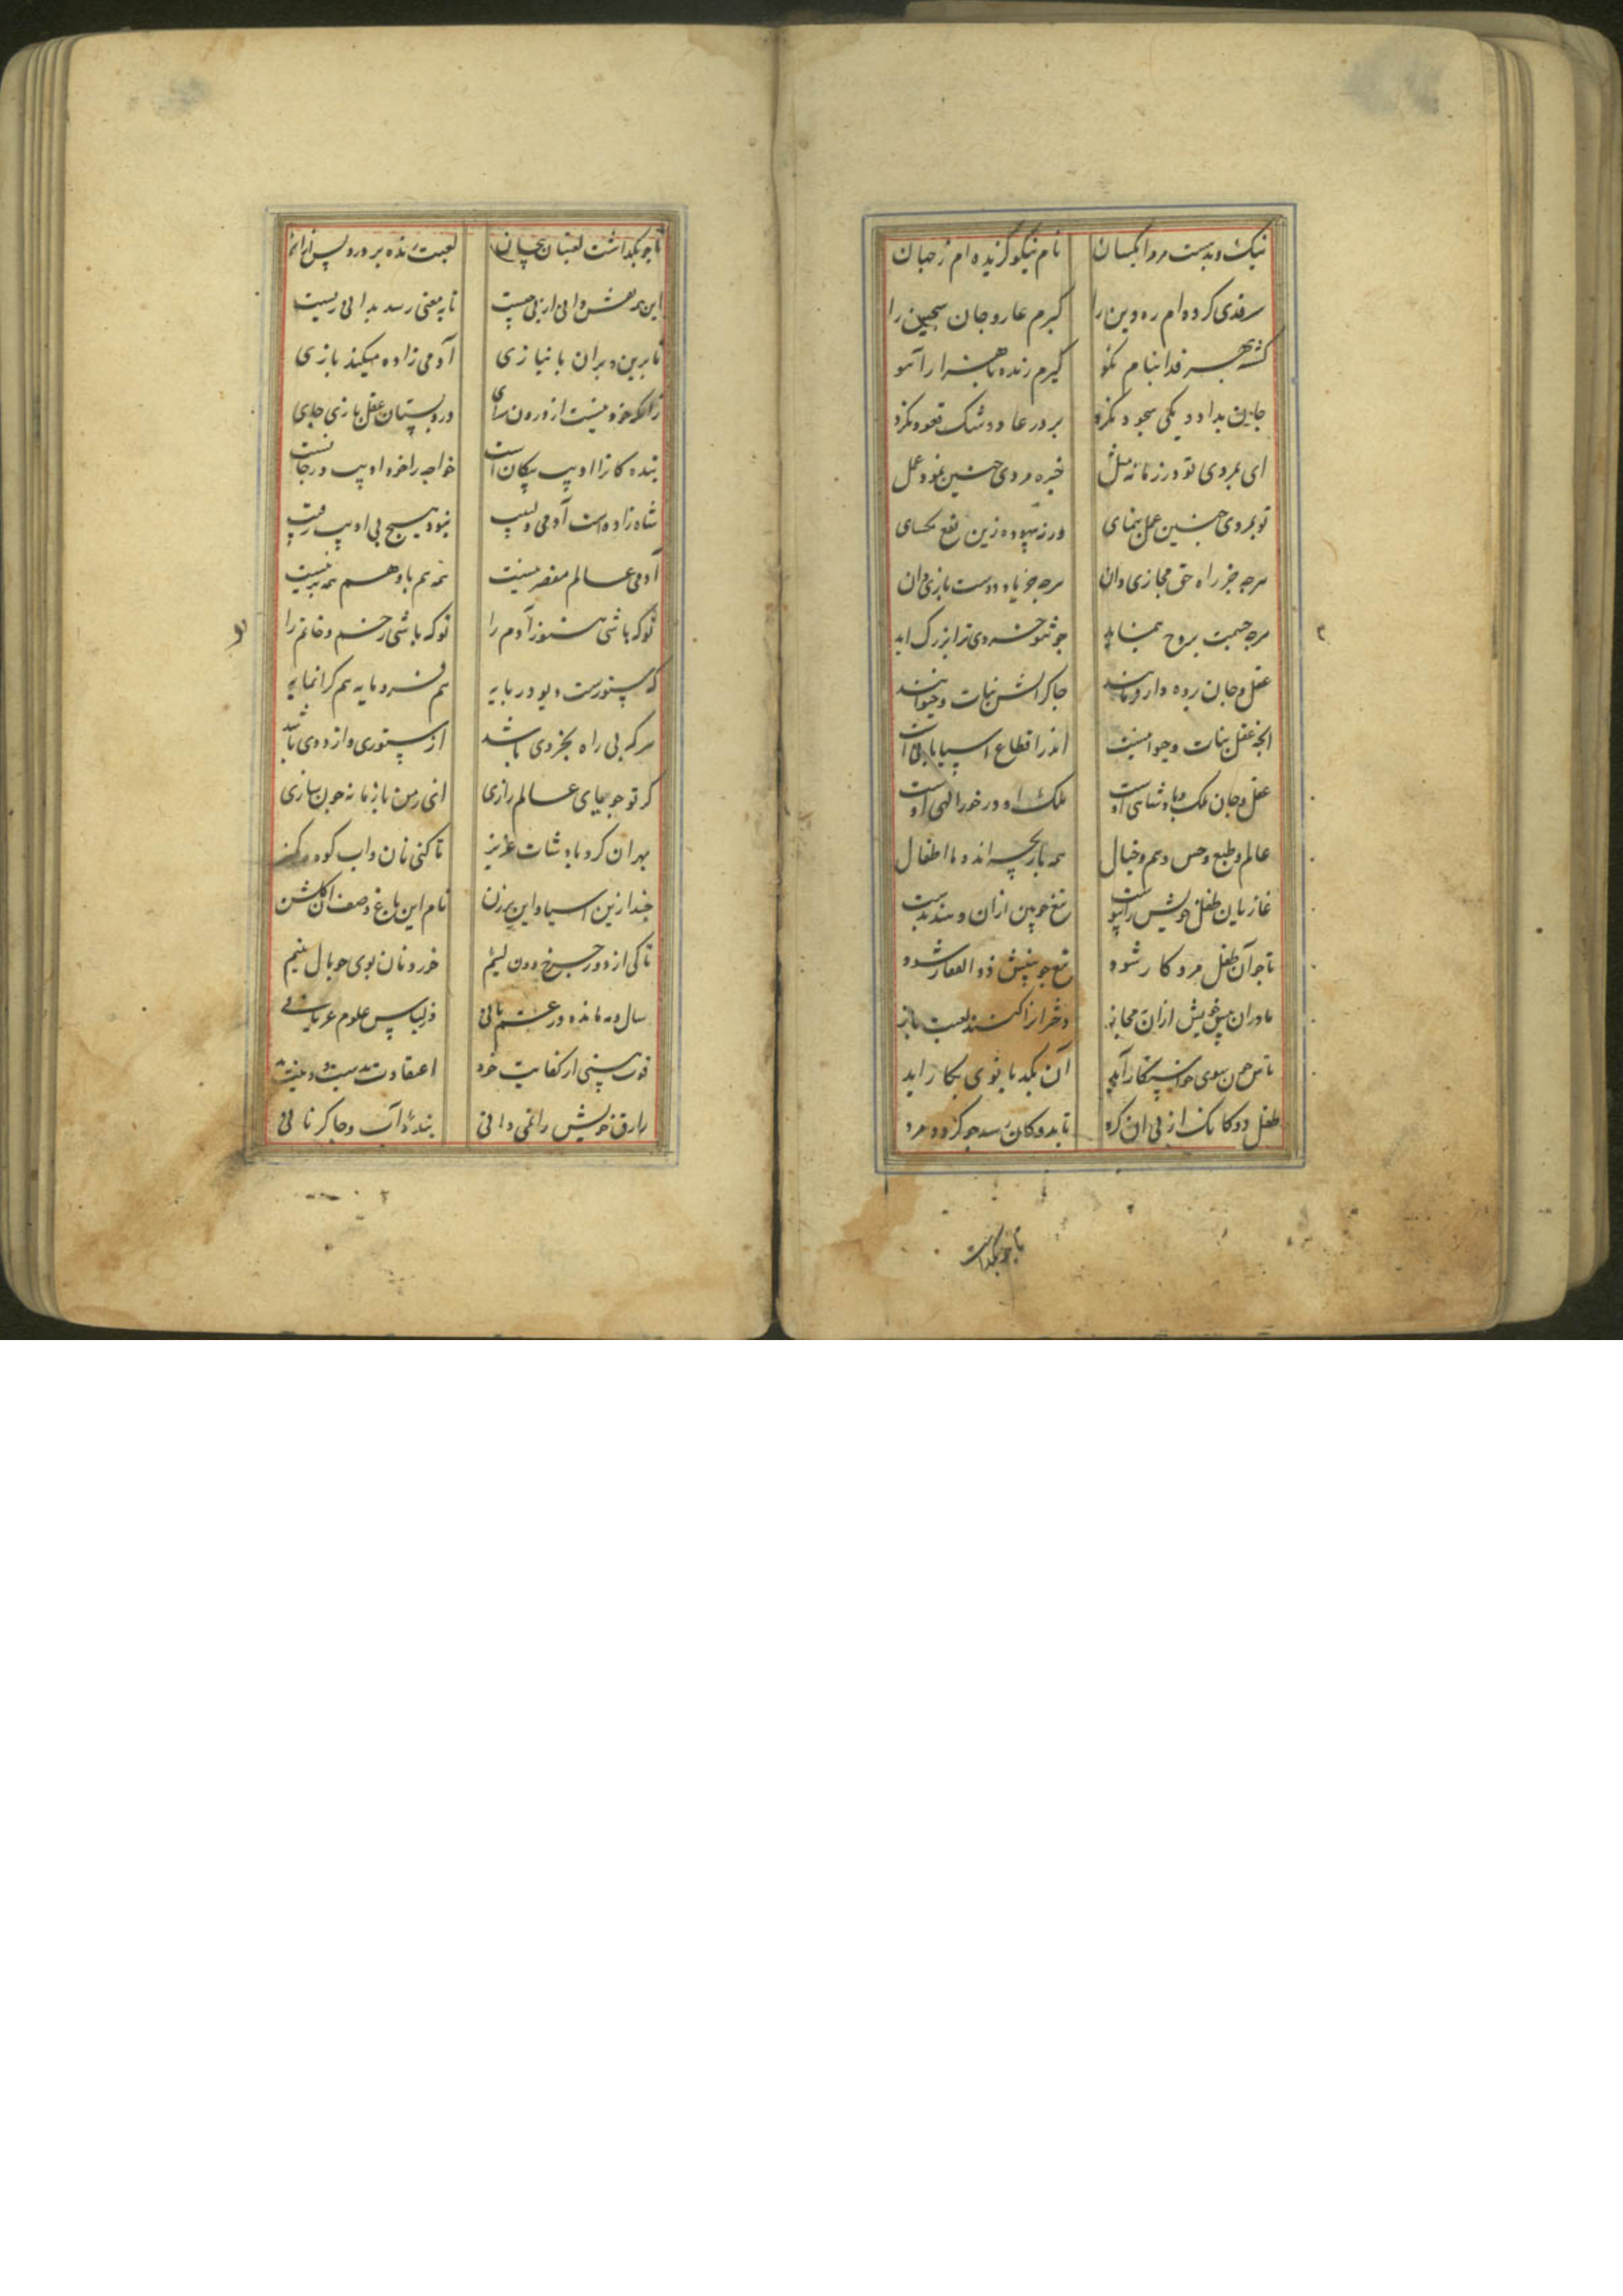 نیک و بدست مر ورا یکسان نام نیکو گزیده‌ام ز جهان
سر فدی کرده‌ام ره دین را گیرم عار و جان سجین را
کشته بهر فدا بنام نکو گیرم زنده تا هزار آهو
جان بداد و یکی سجود نکرد بر در عار و شک قعود نکرد
ای بمردی تو در زمانه مثل خیره مردی چنین نمود عمل
تو بمردی چنین عمل بنمای ورنه بیهوده زین نمع بکسای
هرچه جز راه حق مجازی دان هرچه جز یاد دوست بازی دان
هرچه جسمت بروح بنماید چو تو خردی ترا بزرگ آید
عقل و جان بروه دار و مانند چاکرانش نبات و حیوانند
آنچه عقل نبات و حیوانیست اندر اقطاع آسیابانیست
عقل و جان ملک پادشاهی اوست ملک او در خور الهی اوست
عالم و طبع و حس و هم و خیال همه بازیچه‌اند و ما اطفال
غازیان طفل خویش را پیوست تیغ چوبین ازان دهند بدست
تا چو آن طفل مرد کار شود تیغ چوبینش ذو الفقار شود
مادران پیش خویش ازان بمجاز دختران را کنند لعبت باز
تاش چون سوی خواستکار آید آن بکدبانوی بکار آید
طفل دوکانک از پی آن کرد تا بدوکان رسد چو گردد مرد
تا چو بگذاشت
تا چو بگذاشت لعبتان بیجان لعبت زنده پرورد پس ازان
این همه نقش دانی از پی چیست تا به معنی رسد بدانی ریست
تا برین و بران با نیازی آدمی زاده میکند بازی
زانکه خود نیست از درون سرای در دبستان عقل بازی جای
بنده کانرا ادیب پیکانست خواجه را خود ادیب درجانست
شاه زاده‌ست آدمی و لبیب نبود هیچ بی ادیب رقیب
آدمی عالم مقصر نیست نه هم با و هم مدبر نیست
تو که باشی هنوز آدم را تو که باشی رخم و خاتم را
که ستورست و دیو در پایه هم فرومایه هم گرانمایه
هرکه بی راه بخردی باشد از ستوری و از ددی باشد
گر تو جویای عالم رازی انی رمن با زمانه چون سازی
بهر آن کرد پادشات عزیز تا کنی نان و آب کوه و کمیز
چند ازین آسیا و این برزن نام این باغ وصف آن گلشن
تا کی از دور چرخ دون لئیم خوردن نان بوی چو بال یتیم
سال و مه مانده در غم نانی در لباس علوم عریانی
قوت بینی از کفایت خود اعتقادت بدست و نیت بد
رازق خویش را نمی دانی بنده آب و چاکر نانی